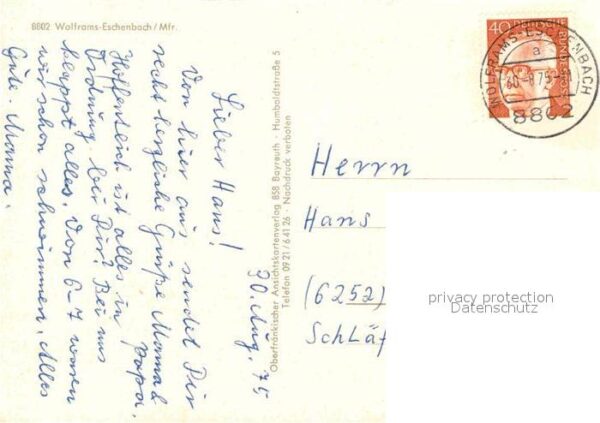 8802 Wolframs-Eschenbach/Mfr.
30. Aug. 75
Lieber Hans!
Von hier aus sendet Dir
recht herzliche Grüße Mama &
Papa.
Hoffentlich ist alles in
Ordnung bei Dir? Bei uns
klappt alles. Von 6-7 waren
wir schon schwimmen. Alles
Gute. Mama.
Oberfränkischer Ansichtskartenverlag 858 Bayreuth · Humboldtstraße 5
Telefon 0921/64126 · Nachdruck verboten
40 DEUTSCHE BUNDESPOST
WOLFRAMS-ESCHENBACH
a
8802
Herrn
Hans
(6252)
Schläf
privacy protection
Datenschutz